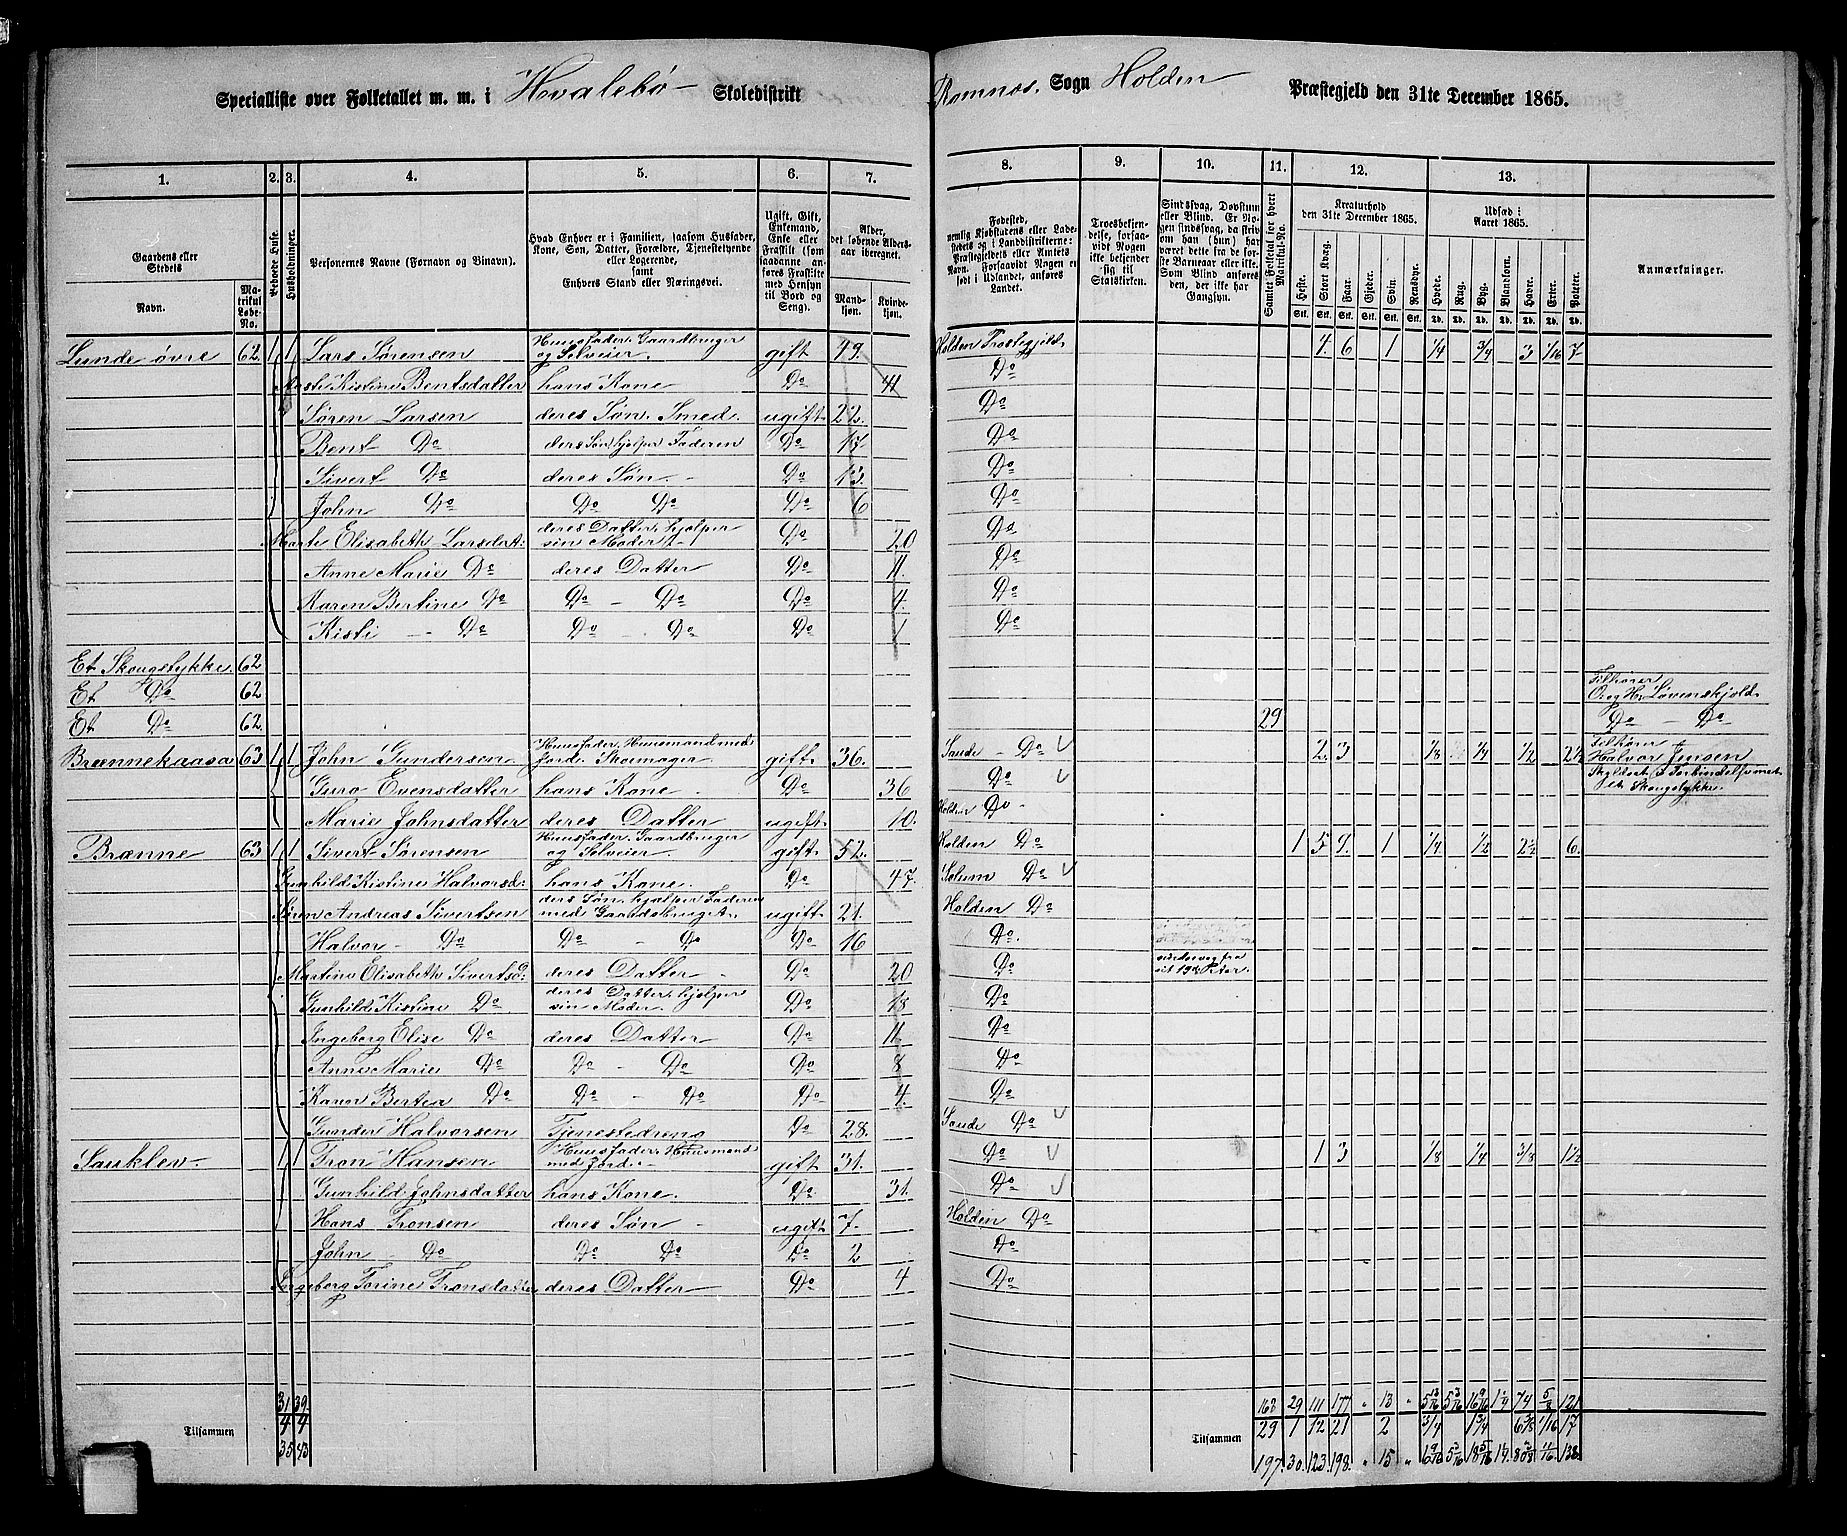 Specialliste over Folketallet m. m. i Hvalebø Skoledistrikt Romnes Sogn Holden Præstegjeld den 31te December 1865.
1. 2. 3. 4. 5. 6. 7. 8. 9. 10. 11. 12. 13.
Gaardens eller Stedets Navn. Matrikul Løbe-No. Beboede Huse. Husholdninger. Personernes Navne (Fornavn og Binavn). Hvad Enhver er i Familien, saasom Husfader, Kone, Søn, Datter, Forældre, Tjenestetyende eller Logerende, samt Enhvers Stand eller Næringsvei. Ugift, Gift, Enkemand, Enke eller Fraskilt (som saadanne anføres Fraskilte med Hensyn til Bord og Seng). Alder, det løbende Alders-aar iberegnet. Mandkjøn. Kvindekjøn.
Fødested, nemlig Kjøbstadens eller Ladestedets og i Landdistrikterne: Præstegjeldets eller Amtets Navn. Forsaavidt Nogen er født i Udlandet, anføres Landet. Troesbekjendelse, forsaavidt Nogen ikke bekjender sig til Statskirken. Sindssvag, Døvstum eller Blind. Er Nogen sindssvag, da skriv om han (hun) har været dette fra de første Barneaar eller ikke. Som Blind anføres den, der ikke har Gangsyn. Samlet Folketal for hvert Matrikul-No. Kreaturhold den 31te December 1865. Udsæd i Aaret 1865. Anmærkninger.
Heste. Stort Kvæg. Faar. Gjeder. Svin. Rensdyr. Hvede. Rug. Byg. Blandkorn. Havre. Erter. Poteter.
Stk. Stk. Stk. Stk. Stk. Stk. Td. Td. Td. Td. Td. Td. Td.
Lunde øvre 62 1 1 Lars Sørensen Huusfader Gaardbruger og Selveier gift 49 Holden Præstegjeld 4 6 1 1/4 3/4 3 1/16 7
Kistine Bentsdatter hans Kone Do 41 Do
Søren Larsen deres Søn, Smed ugift 22 Do
Bent Do deres Søn hjelper Faderen Do 17 Do
Sivert Do deres Søn Do 13 Do
John Do Do Do Do 6 Do
Elisabeth Larsdat: deres Datter, hjelper sin Moder Do 20 Do
Anne Marie Do deres Datter Do 11 Do
Karen Bertine Do Do - Do Do 4 Do
Kisti - Do Do - Do Do 1 Do
Et Skougstykke 62
Et Do 62 Tilhører Løvenskjold
Et Do 62 29 Do - Do
Brænnekaasa 63 1 1 John Gundersen Huusfader, Huusmand med Jord, Skomager gift 36 Saude Do 2 3 1/8 1/4 1/2 2 1/2 Tilhører Halvor Jensen
Guro Evensdatter hans Kone Do 36 Do Skyldsat i Forbindelse med et Skougstykke
Marie Johnsdatter deres Datter ugift 10 Holden Do
Brænne 63 1 1 Sivert Sørensen Huusfader Gaardbruger og Selveier gift 52 Holden Do 1 5 9 1 1/4 1/2 2 1/2 6
Gunhild Kistine Halvorsd: hans Kone Do 47 Solum Do
Søren Andreas Sivertsen deres Søn, hjelper Faderen med Gaardsbruget ugift 21 Holden Do
Halvor Do Do - Do Do 16 Do
Martine Elisabeth Sivertsd: deres Datter Do 20 Do
Gunhild Kistine Do deres Datter, hjelper sin Moder Do 18 Do
Ingeborg Elise Do deres Datter Do 11 Do
Anne Marie Do Do - Do Do 8 Do
Karen Bertea Do Do - Do Do 4 Do
Gunder Halvorsen Tjenestedreng Do 28 Saude Do
Sauklev 1 1 Tron Hansen Huusfader Huusmand med Jord gift 31 Do 1 3 1/8 1/4 3/8 1 1/2
Gunhild Johnsdatter hans Kone Do 31 Do
Hans Tronsen deres Søn ugift 7 Holden Do
John Do Do Do Do 2 Do
Ingeborg Torine Tronsdatter deres Datter Do 4 Do
31 39 168 29 111 177 " 13 " 74 5/8 121
Tilsammen 4 4 Tilsammen 29 1 12 21 2 3/4 1 3/4 6 3/8 1/16 17
35 43 197 30 123 198 " 15 " 11/16 138